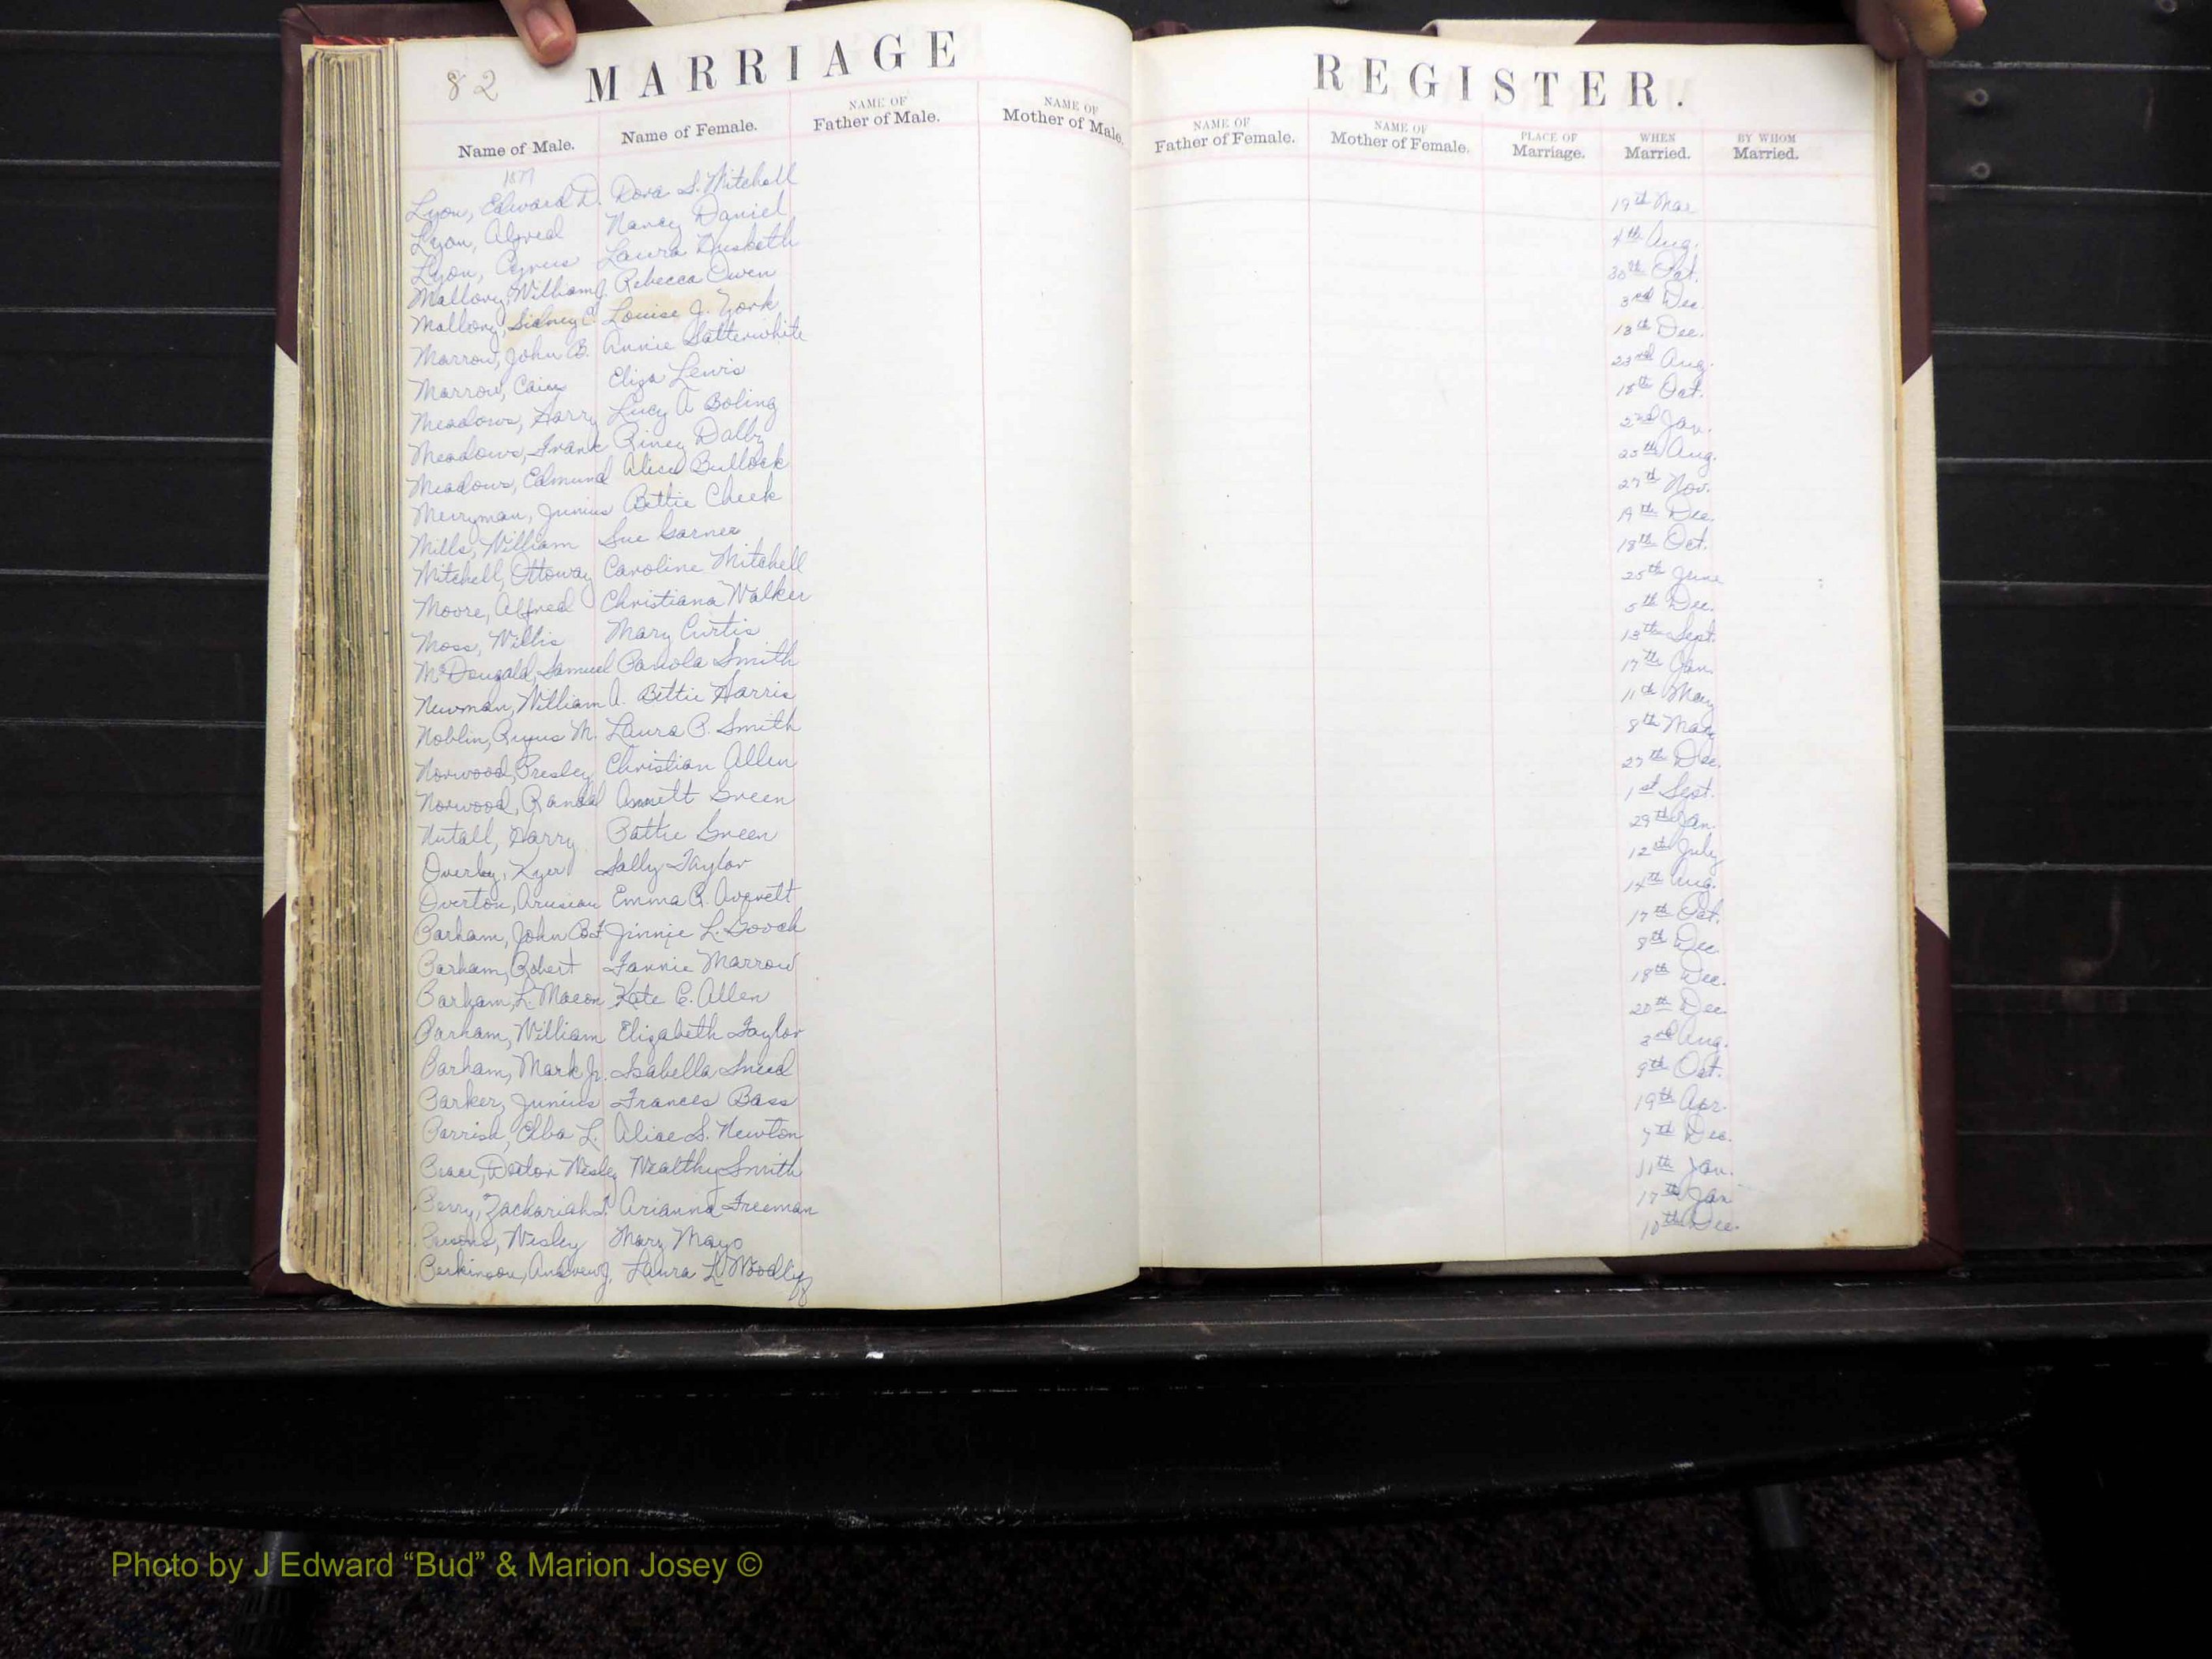 82 MARRIAGE REGISTER.
Name of Male. Name of Female. NAME OF Father of Male. NAME OF Mother of Male. NAME OF Father of Female. NAME OF Mother of Female. PLACE OF Marriage. WHEN Married. BY WHOM Married.
1877
Lyon, Edward D. Dora S. Mitchell 19th Mar
Lyon, Alfred Nancy Daniel 4th Aug.
Lyon, Cyrus Laura Husketh 30th Oct.
Mallory, William J. Rebecca Owen 3rd Dec.
Mallory, Sidney E. Louise J. York 13th Dec.
Marrow, John B. Annie Satterwhite 23rd Aug.
Marrow, Cains Eliza Lewis 18th Oct.
Meadows, Harry Lucy A Boling 2nd Jan.
Meadows, Frank Riney Dalby 25th Aug.
Meadows, Edmund Alice Bullock 27th Nov.
Merryman, Junius Bettie Cheek Dec.
Mills, William Sue Garner 18th Oct.
Mitchell, Ottoway Caroline Mitchell 25th June
Moore, Alfred Christiana Walker 5th Dec.
Moss, Willis Mary Curtis 13th Sept.
McDougald, Samuel Panola Smith 17th Jan.
Newman, William A. Bettie Harris 11th May
Noblin, Rufus M. Laura P. Smith 8th May
Norwood, Presley Christian Allen 27th Dec.
Norwood, Randal Annett Green 1st Sept.
Nutall, Harry Pattie Green 29th Jan.
Overby, Kyer Sally Taylor 12th July
Overton, Emma R. Averett 14th Aug.
Parham, John Jinnie L. Gooch 17th Oct.
Parham, Robert Fannie Marrow 8th Dec.
Parham, L. Macon Kate C. Allen 18th Dec.
Parham, William Elizabeth Taylor 20th Dec.
Parham, Mark Jr. Isabella Sneed 3rd Aug.
Parker, Junius Frances Bass 9th Oct.
Parrish, Elba L. Alice S. Newton 19th Apr.
Peace, Doctor Wesley Wealthy Smith 7th Dec.
Perry, Zachariah T. Arianna Freeman 11th Jan.
Persons, Wesley Mary Mayo 17th Jan
Perkinson, Andrew J. Laura L. Woodlief 10th Dec.
Photo by J Edward “Bud” & Marion Josey ©